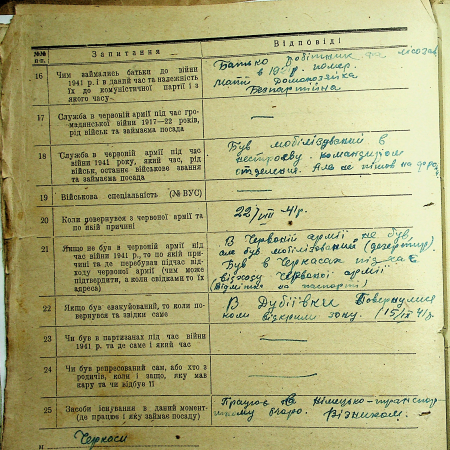 №№ п-п.
Запитання
Відповіді
16
Чим займались батьки до війни
1941 р. і в даний час та належність
їх до комуністичної партії і з
якого часу
Батько робітник на лісозав.
в 19 р. помер.
мати домохазяйка
Безпартійна
17
Служба в червоній армії під час гро-
мадянської війни 1917—22 років,
рід військ та займаєма посада
—
18
Служба в червоній армії під час
війни 1941 року, який час, рід
військ, останнє військове звання
та займаєма посада
Був мобілізований в
командиром
отделения. Але не пішов на
19
Військова спеціальність (№ ВУС)
—
20
Коли повернувся з червоної армії та
по якій причині
22/VIII 41 р.
21
Якщо не був в червоній армії під
час війни 1941 р., то по якій при-
чині та де перебував підчас від-
ходу червоної армії (чим може
підтвердити, а коли свідками то їх
адреса)
В Червоній армії не був,
але був мобілізований
Був в Черкасах під час
відходу Червоної армії
(Відмітка на паспорті)
22
Якщо був евакуйований, то коли по-
вернувся та звідки саме
В Дубіївки Повернулися
коли відкрили зону. (15/IX 41 р.
23
Чи був в партизанах під час війни
1941 р. та де саме і який час
—
24
Чи був репресований сам, або хто з
родичів, коли і защо, яку мав
кару та чи відбув її
—
25
Засоби існування в даний момент-
(де працює і яку займає посаду)
Працює в Німецько-транспор
тному бюро. Візником.
м
Черкаси